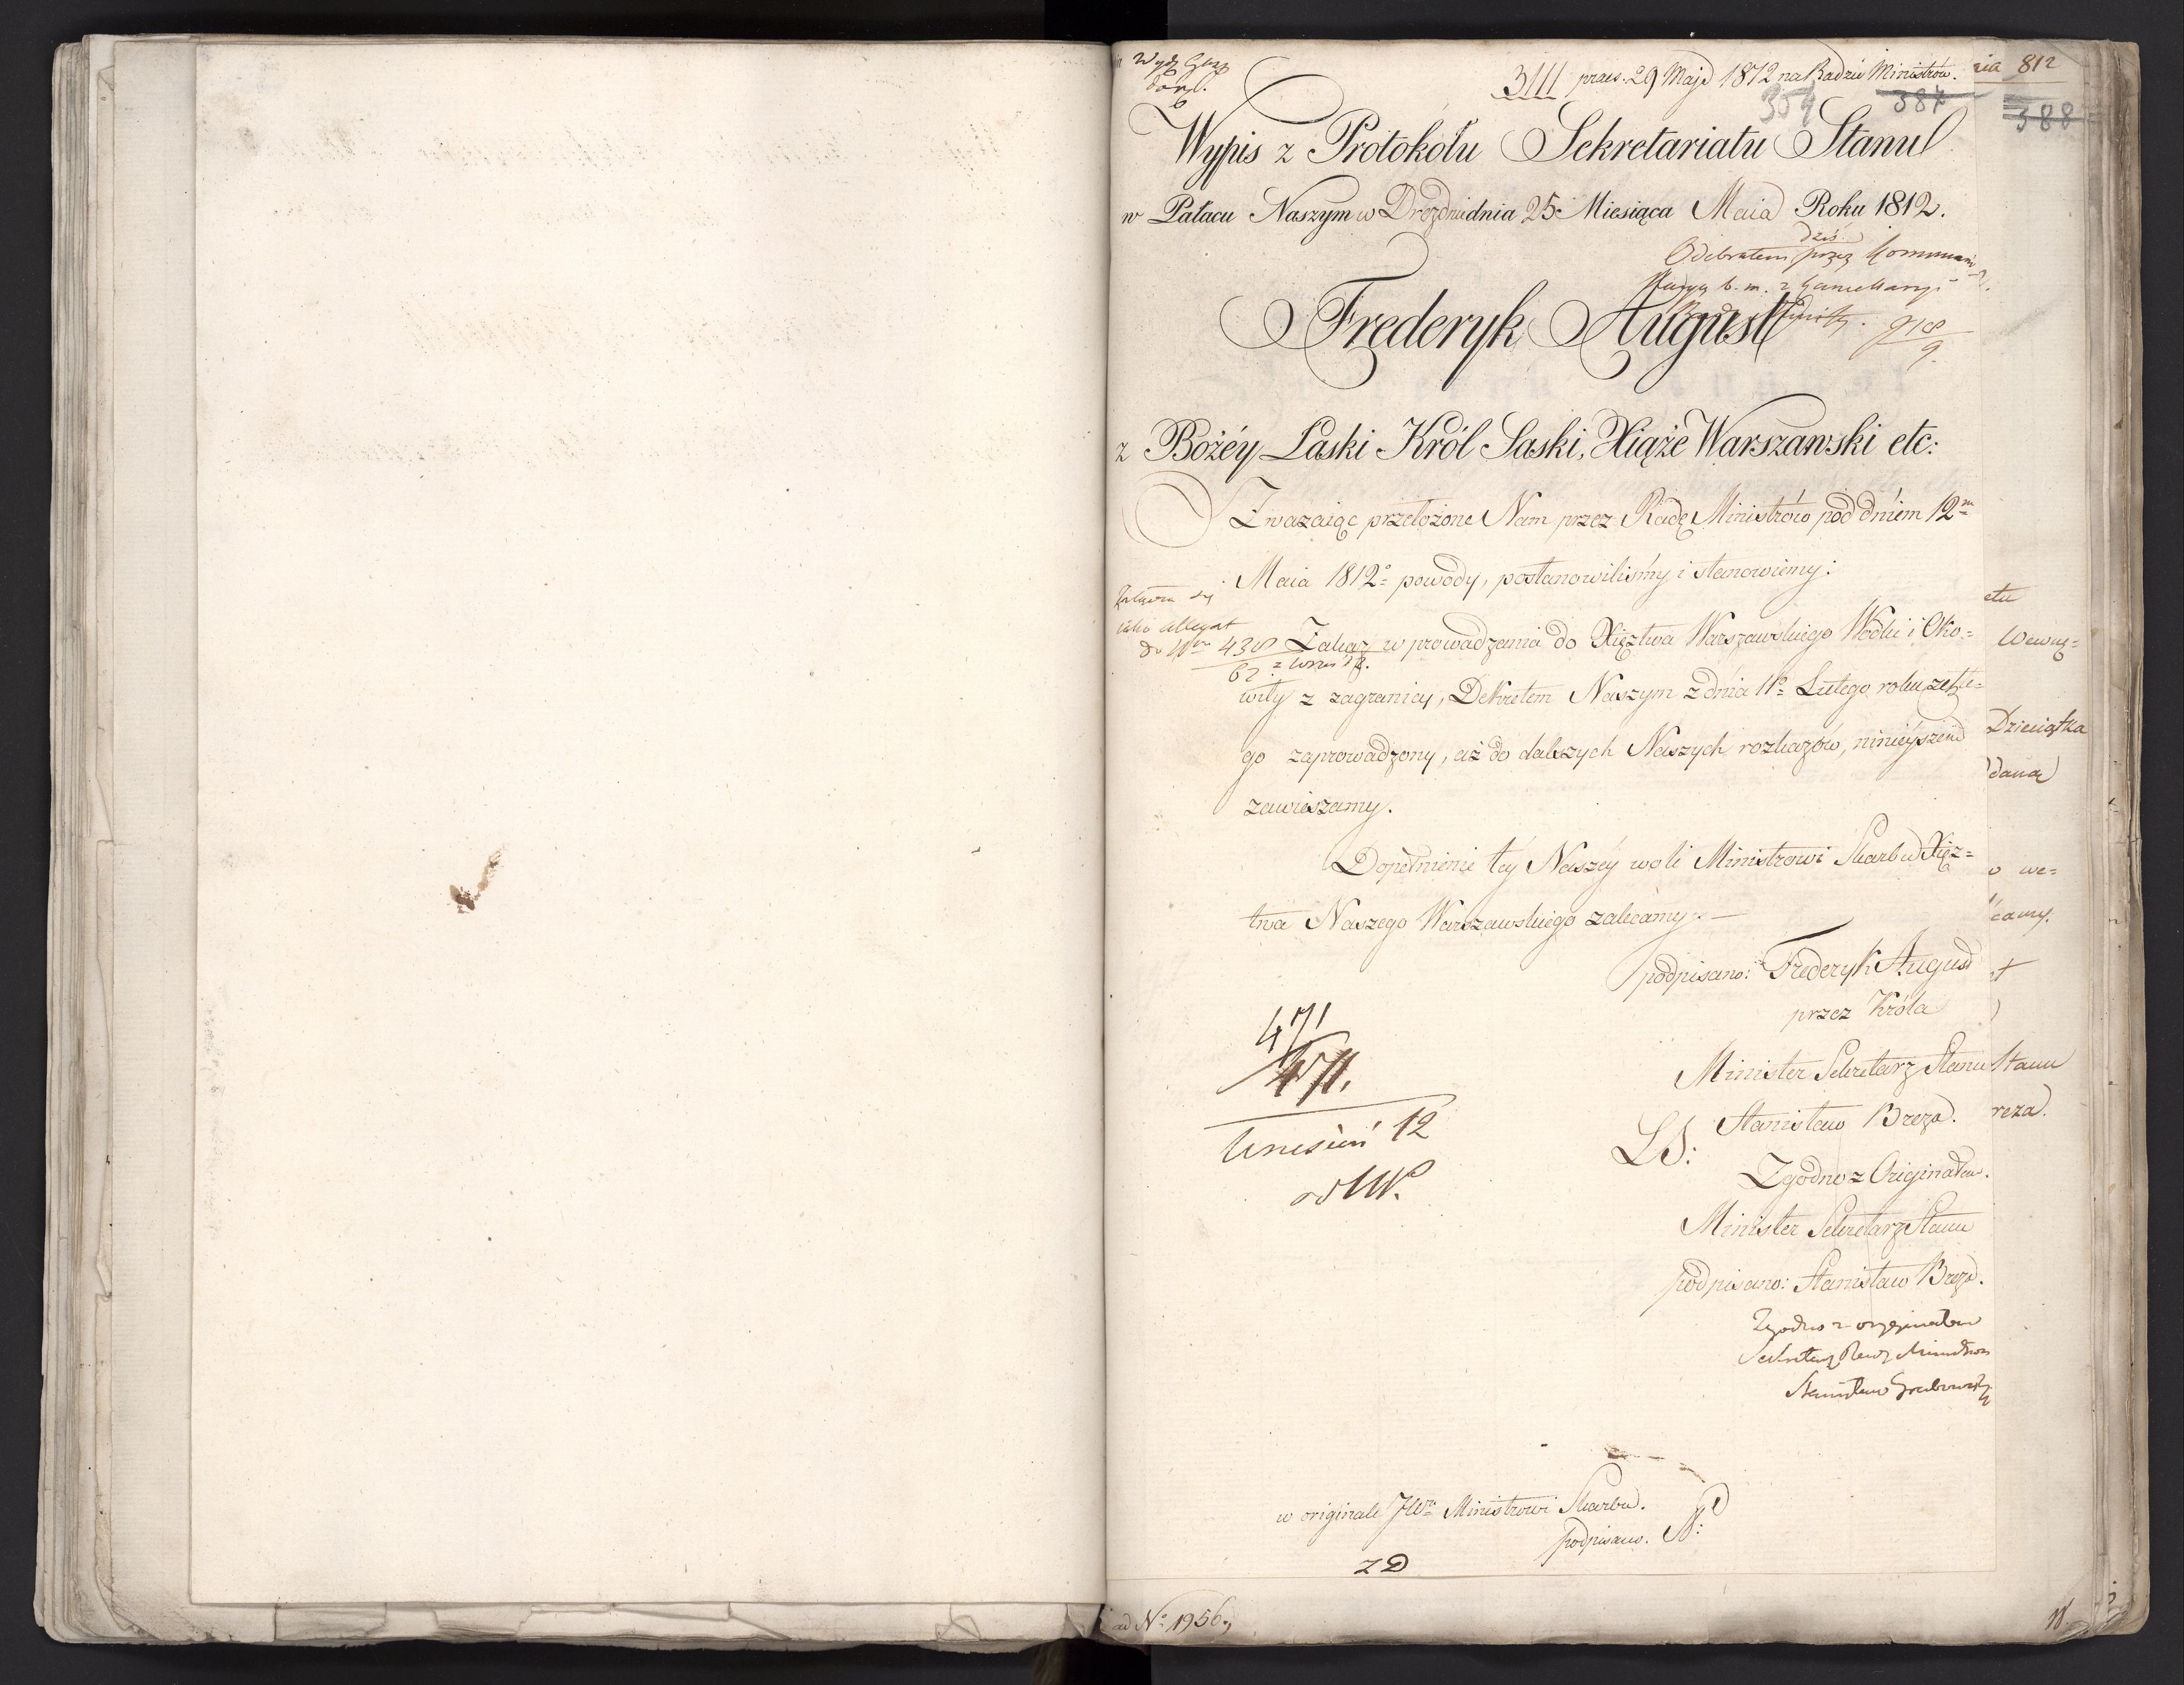 3111 praes. 29 Maja 1812 na Radzie Ministrów.
354 387
Wypis z Protokołu Sekretariatu Stanu
w Pałacu Naszym w Dreźnie dnia 25 Miesiąca Maia Roku 1812.
dziś
Odebrałem przez
b. m. z
918
9.
Frederyk August
z Bożéy Łaski Król Saski, Xiąże Warszawski etc:
Zważaiąc przełożone Nam przez Radę Ministrów pod dniem 12m
Maia 1812o powody, postanowiliśmy i stanowiemy:
iako allegat
do Nru 438
62
Zakaz wprowadzania do Xięztwa Warszawskiego Wódki i Oko=
wity z zagranicy, Dekretem Naszym z dnia 11o Lutego roku zeszłe=
go zaprowadzony, aż do dalszych Naszych rozkazów, ninieyszem
zawieszamy.
Dopełnienie téy Naszéy woli Ministrowi Skarbu Xięz=
twa Naszego Warszawskiego zalecamy. —
podpisano: Frederyk August
przez Króla
Minister Sekretarz Stanu
LS: Stanisław Breza.
Zgodno z Originałem.
Minister Sekretarz Stanu
podpisano: Stanisław Breza.
Zgodno z oryginałem
Sekretarz Rady Ministrów
Stanisław Grabowski
471
471.
12
w originale JWu Ministrowi Skarbu.
podpisano.
ZD
ad No 1956.
nia 812
388
etu
Wewnę=
Dzieciątka
daną
o we=
camy.
st
Stanu
reza.